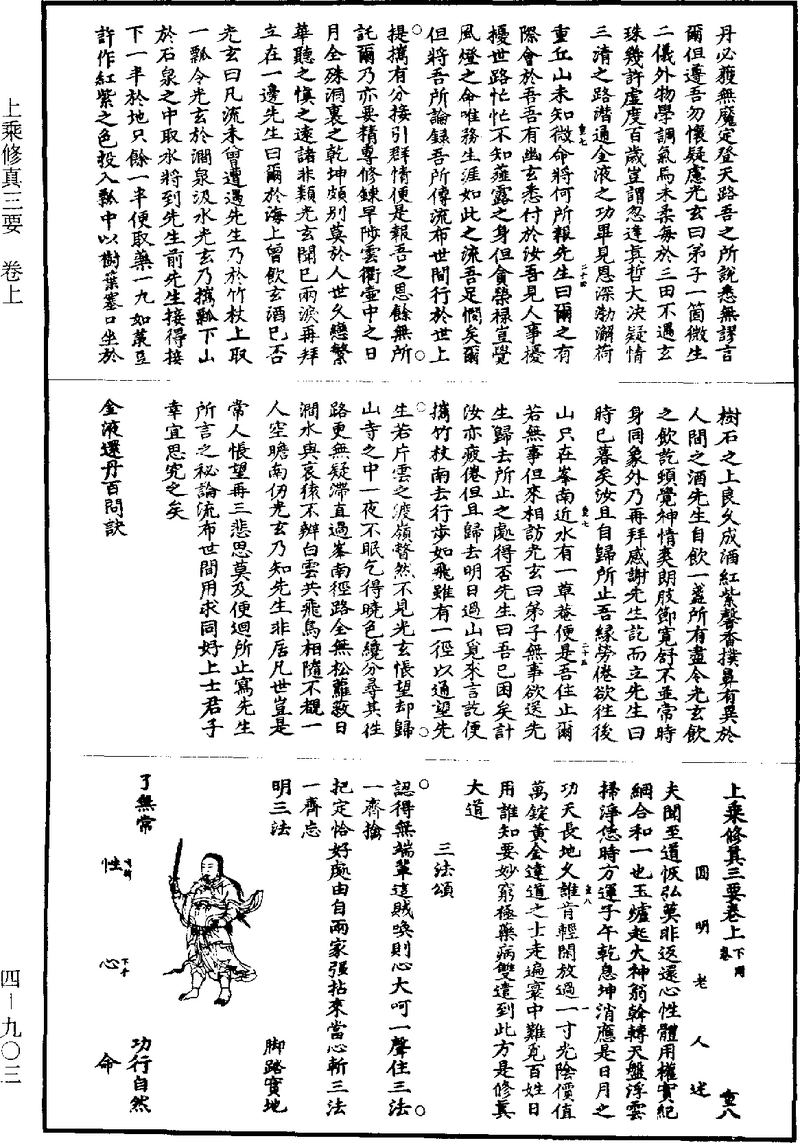 上乘修真三要　卷上
四—九〇三
丹必獲無魔定登天路吾之所說悉無謬言
爾但遵吾勿懷疑慮光玄曰弟子一箇微生
二儀外物學調氣馬未柔每於三田不遇玄
珠幾許虛度百歲豈謂忽逢真哲大決疑情
三清之路潛通金液之功畢見恩深渤澥荷
重丘山未知微命將何所報先生曰爾之有
際會於吾吾有幽玄悉付於汝吾見人事擾
擾世路忙忙不知薤露之身但貪榮祿豈覺
風燈之命唯務生涯如此之流吾足憫矣爾
但將吾所論錄吾所傳流布世間行於世上
提攜有分接引群情便是報吾之恩餘無所
託爾乃亦要精專修鍊早陟雲衢壺中之日
月全殊洞裏之乾坤頗别莫於人世久戀繁
華聽之慎之遠諸非類光玄聞已兩淚再拜
立在一邊先生曰爾於海上曾飲玄酒已否
光玄曰凡流未曾遭遇先生乃於竹杖上取
一瓢令光玄於澗泉汲水光玄乃攜瓢下山
於石泉之中取水將到先生前先生接得接
下一半於地只餘一半便取藥一丸如菉豆
許作紅紫之色投入瓢中以樹葉塞口坐於
樹石之上良久成酒紅紫馨香撲鼻有異於
人間之酒先生自飲一盞所有盡令光玄飲
之飲訖頓覺神情爽朗肢節寬舒不並常時
身同象外乃再拜感謝先生訖而立先生曰
時已暮矣汝且自歸所止吾緣勞倦欲往後
山只在峯南近水有一草菴便是吾住止爾
若無事但來相訪光玄曰弟子無事欲送先
生歸去所止之處得否先生曰吾已困矣計
汝亦疲倦但且歸去明日過山覓來言訖便
攜竹杖南去行步如飛雖有一徑以通望先
生若片雲之渡嶺瞥然不見光玄悵望却歸
山寺之中一夜不眠乞得曉色纔分尋其往
路更無疑滯直過峯南徑路全無松蘿蔽日
澗水與哀猿不辨白雲共飛鳥相隨不覩一
人空瞻南仞光玄乃知先生非居凡世豈是
常人悵望再三悲思莫及便迴所止寫先生
所言之秘論流布世間用求同好上士君子
幸宜思究之矣
金液還丹百問訣
上乘修真三要卷上 下同卷 重八
圓明老人述
夫聞至道恢弘莫非返還心性體用權實紀
綱合和一也玉爐起火神翁斡轉天盤浮雲
掃淨恁時方運子午乾息坤消應是日月之
功天長地久誰肯輕閑放過一寸光陰價值
萬錠黃金達道之士走遍寰中難覓百姓日
用誰知要妙窮極藥病雙遣到此方是修真
大道
三法頌
認得無端輩這賊喚則心大呵一聲住三法
一齊擒
把定恰好處由自兩家强拈來當心斬三法
一齊忘
明三法
脚踏實地
了無常
性
心
命
功行自然